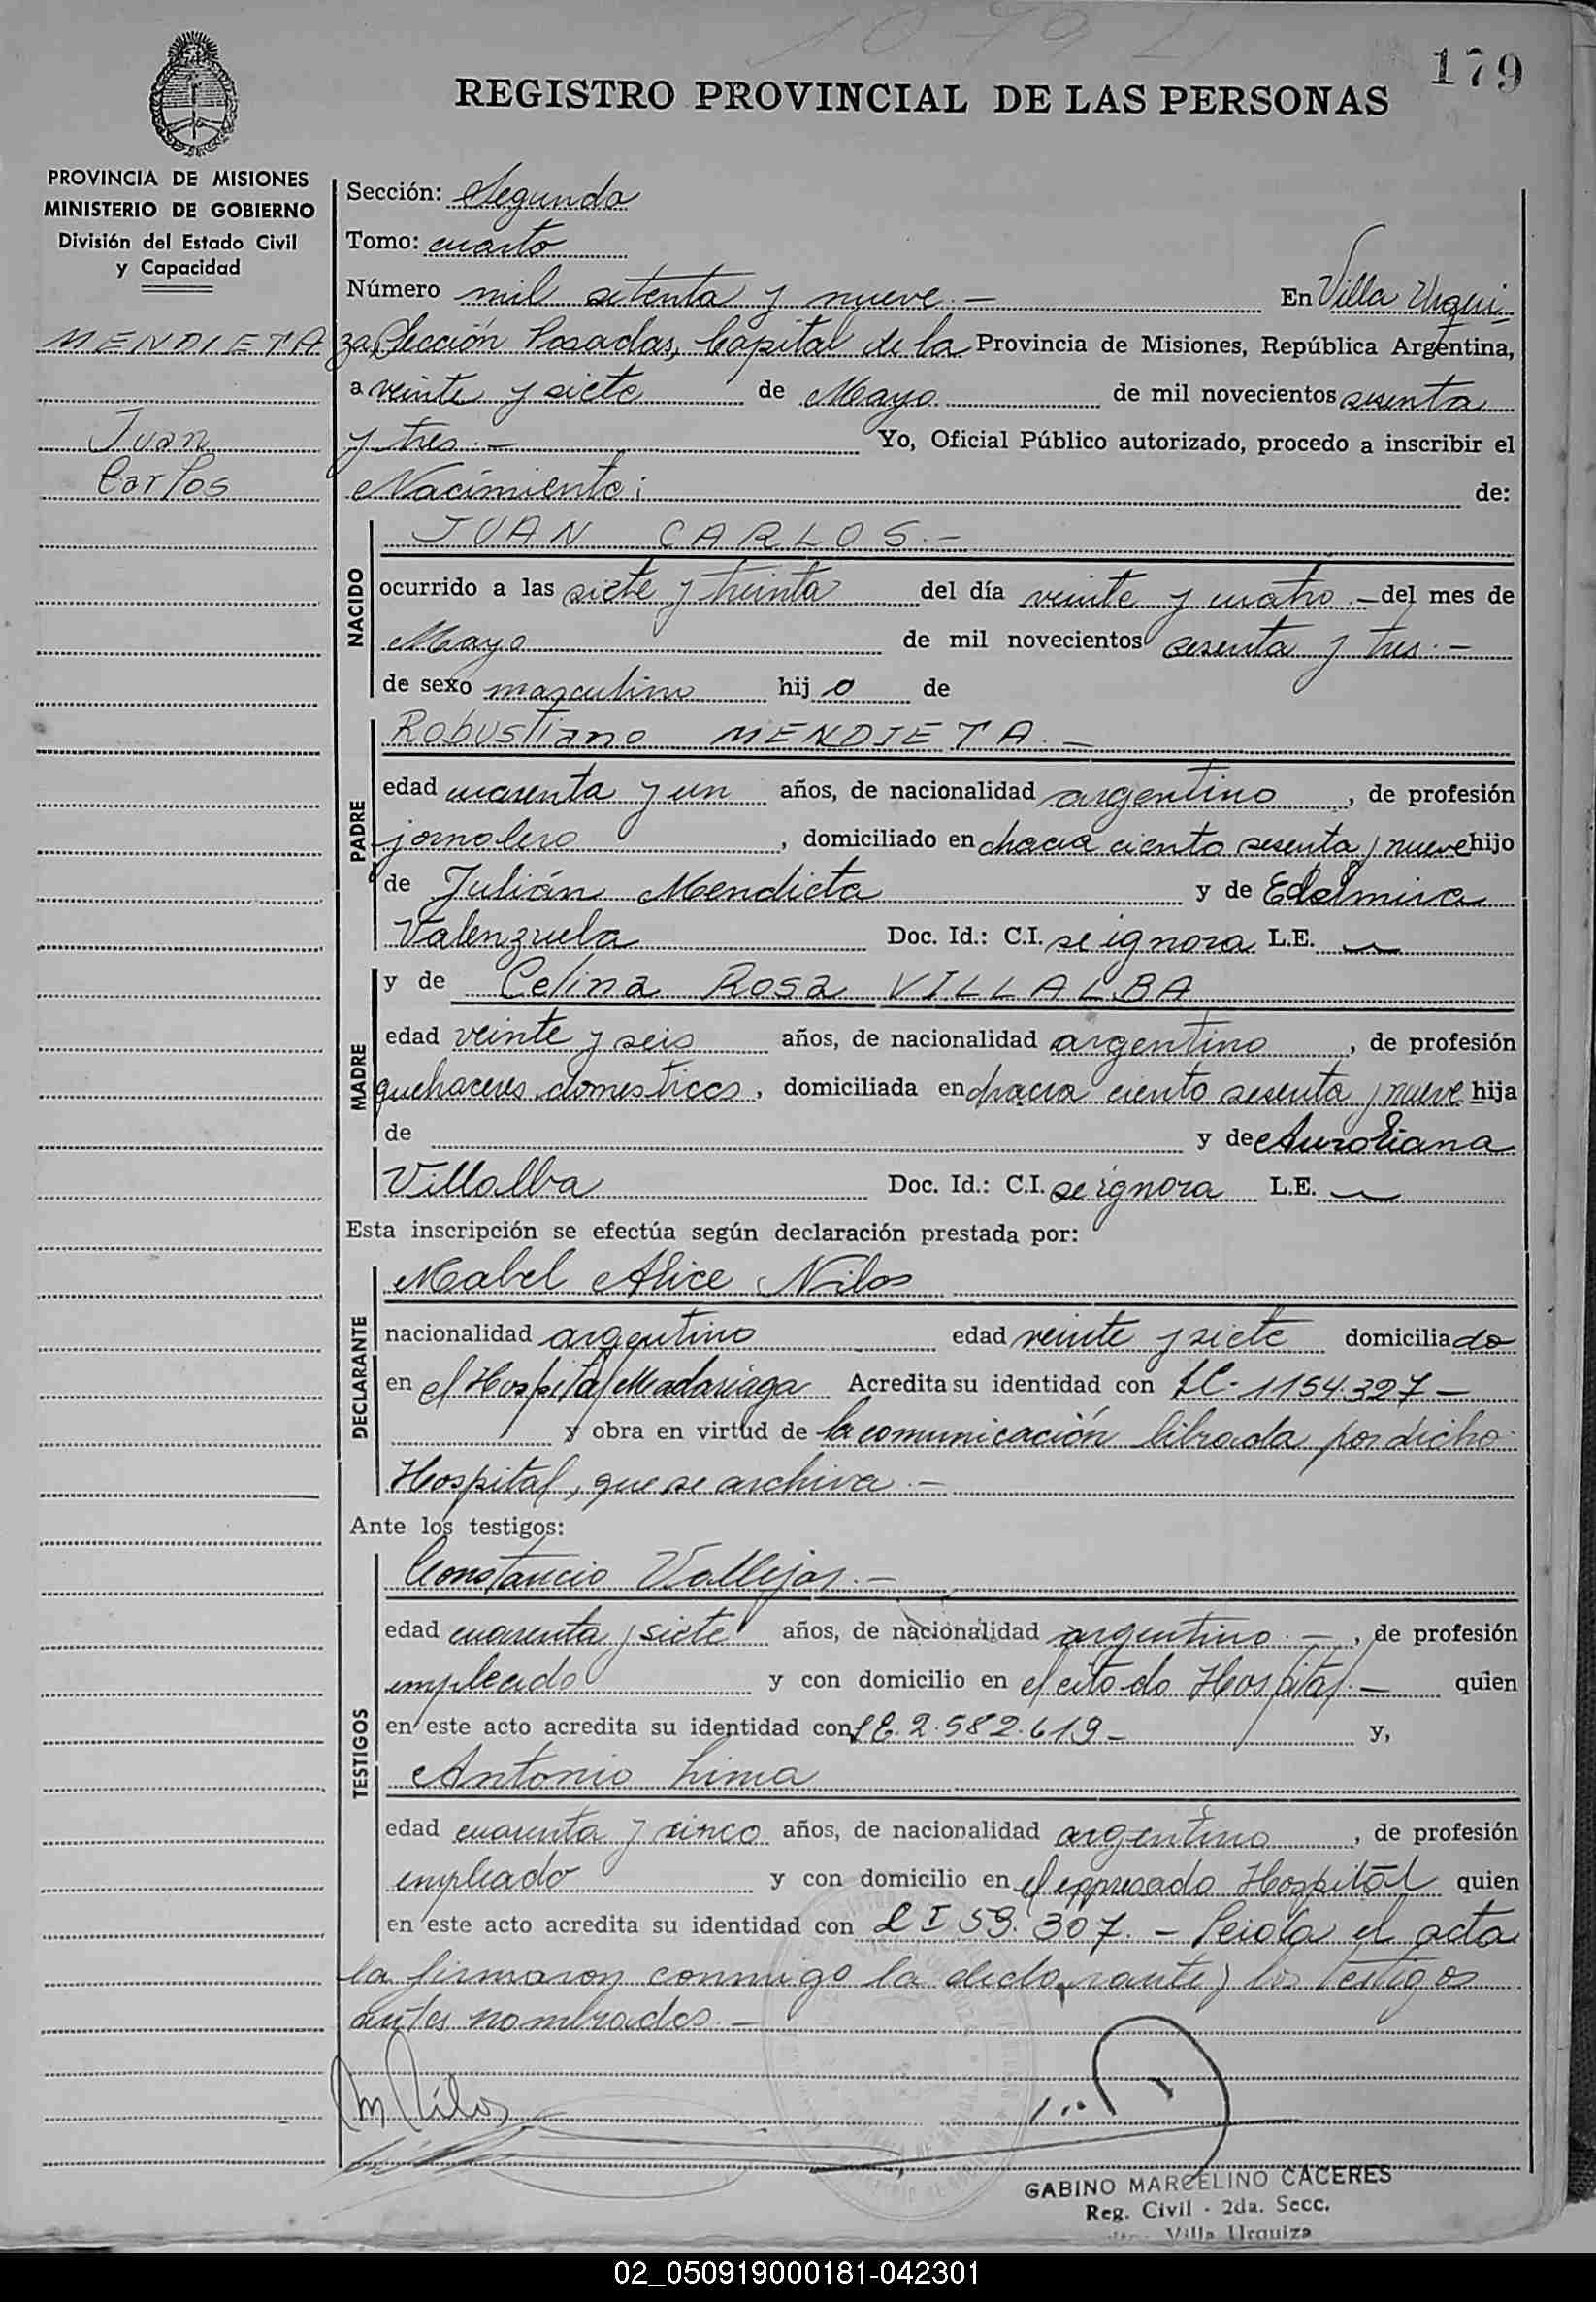 179
REGISTRO PROVINCIAL DE LAS PERSONAS
PROVINCIA DE MISIONES
MINISTERIO DE GOBIERNO
División del Estado Civil
y Capacidad
MENDIETA
Juan
Carlos
Sección: Segunda
Tomo: cuarto
Número mil setenta y nueve.— En Villa Urqui-
za, Sección Posadas, Capital de la Provincia de Misiones, República Argentina,
a veinte y siete de Mayo de mil novecientos sesenta
y tres.— Yo, Oficial Público autorizado, procedo a inscribir el
Nacimiento: de:
NACIDO
JUAN CARLOS.—
ocurrido a las siete y treinta del día veinte y cuatro.— del mes de
Mayo de mil novecientos sesenta y tres.—
de sexo masculino hijo de
PADRE
Robustiano MENDIETA.—
edad cuarenta y un años, de nacionalidad argentino, de profesión
jornalero, domiciliado en chacra ciento sesenta y nueve hijo
de Julián Mendieta y de Edelmira
Valenzuela Doc. Id.: C.I. se ignora L.E. —
MADRE
y de Celina Rosa VILLALBA
edad veinte y seis años, de nacionalidad argentino, de profesión
quehaceres domesticos, domiciliada en chacra ciento sesenta y nueve hija
de y de Aureliana
Villalba Doc. Id.: C.I. se ignora L.E. —
Esta inscripción se efectúa según declaración prestada por:
DECLARANTE
Mabel Alice Nilos
nacionalidad argentino edad veinte y siete domiciliado
en el Hospital Madariaga Acredita su identidad con LC-1154.327—
y obra en virtud de la comunicación librada por dicho
Hospital, que se archiva.—
Ante los testigos:
TESTIGOS
Constancio Vallejos.—
edad cuarenta y siete años, de nacionalidad argentino.—, de profesión
empleado y con domicilio en el citado Hospital.— quien
en este acto acredita su identidad con LE. 2.582.619— y,
Antonio Lima
edad cuarenta y cinco años, de nacionalidad argentino, de profesión
empleado y con domicilio en el expresado Hospital quien
en este acto acredita su identidad con CI 59.307.— Leida el acta
la firmaron conmigo la declarante y los testigos
antes nombrados.—
M Nilos
GABINO MARCELINO CACERES
Reg. Civil - 2da. Secc.
Villa Urquiza
02_050919000181-042301